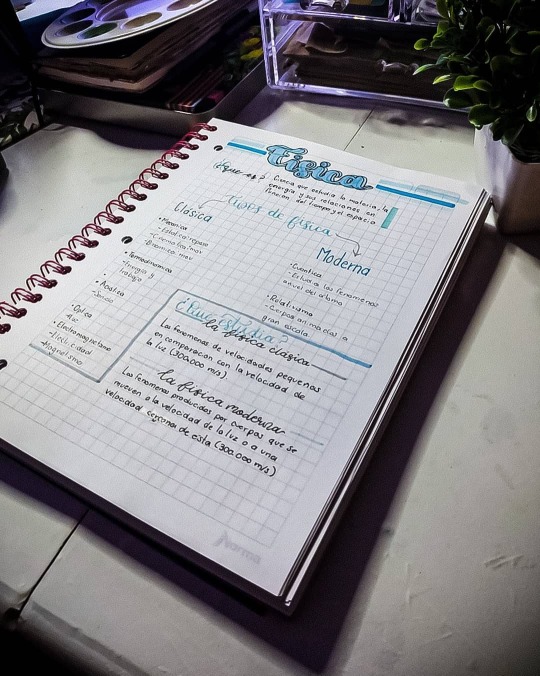 Física
¿Que es? Ciencia que estudia la materia, la
energía y sus relaciones en
función del tiempo y el espacio
Tipos de física
Clásica
• Mecanica
- Estatica: reposo
- Cinematica: mov
- Dinamica: mov
• Termodinamica
- Energia y
trabajo
• Acustica
- Sonido
• Optica
- Luz
• Electromagnetismo
- Electricidad
- Magnetismo
Moderna
• Cuantica
- Estudia los fenomenos
a nivel del atomo
• Relativismo
- Cuerpos en
gran escala
¿Que Estudia?
la física clásica
Los fenomenos de velocidades pequeñas
en comparacion con la velocidad de
la luz (300.000 m/s).
la física moderna
Los fenomenos producidos por cuerpos que se
mueven a la velocidad de la luz o a una
velocidad cercana de esta (300.000 m/s)
Norma